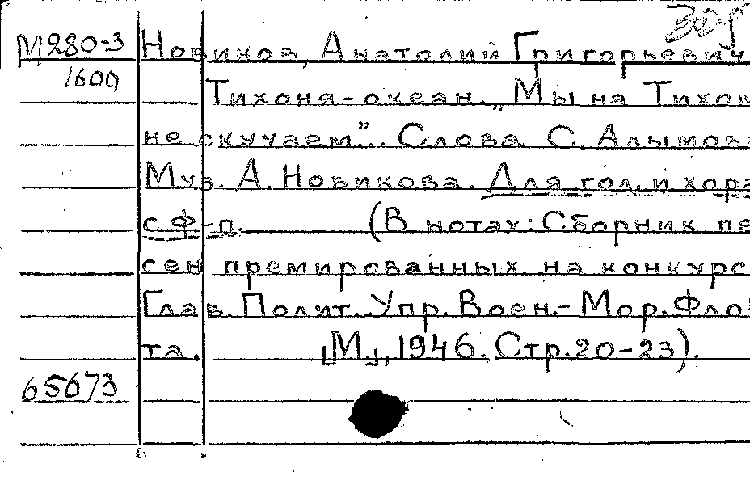 М280-3 Новиков, Анатолий Григорьевич
1600 Тихоня-океан. „Мы на Тихом
не скучаем". Слова С. Алымова.
Муз. А. Новикова. Для гол. и хора
с ф-п. (В нотах: Сборник пе-
сен премированных на конкурсе
Глав. Полит. Упр. Воен.-Мор. Фло-
та. [М], 1946. Стр. 20-23).
65673